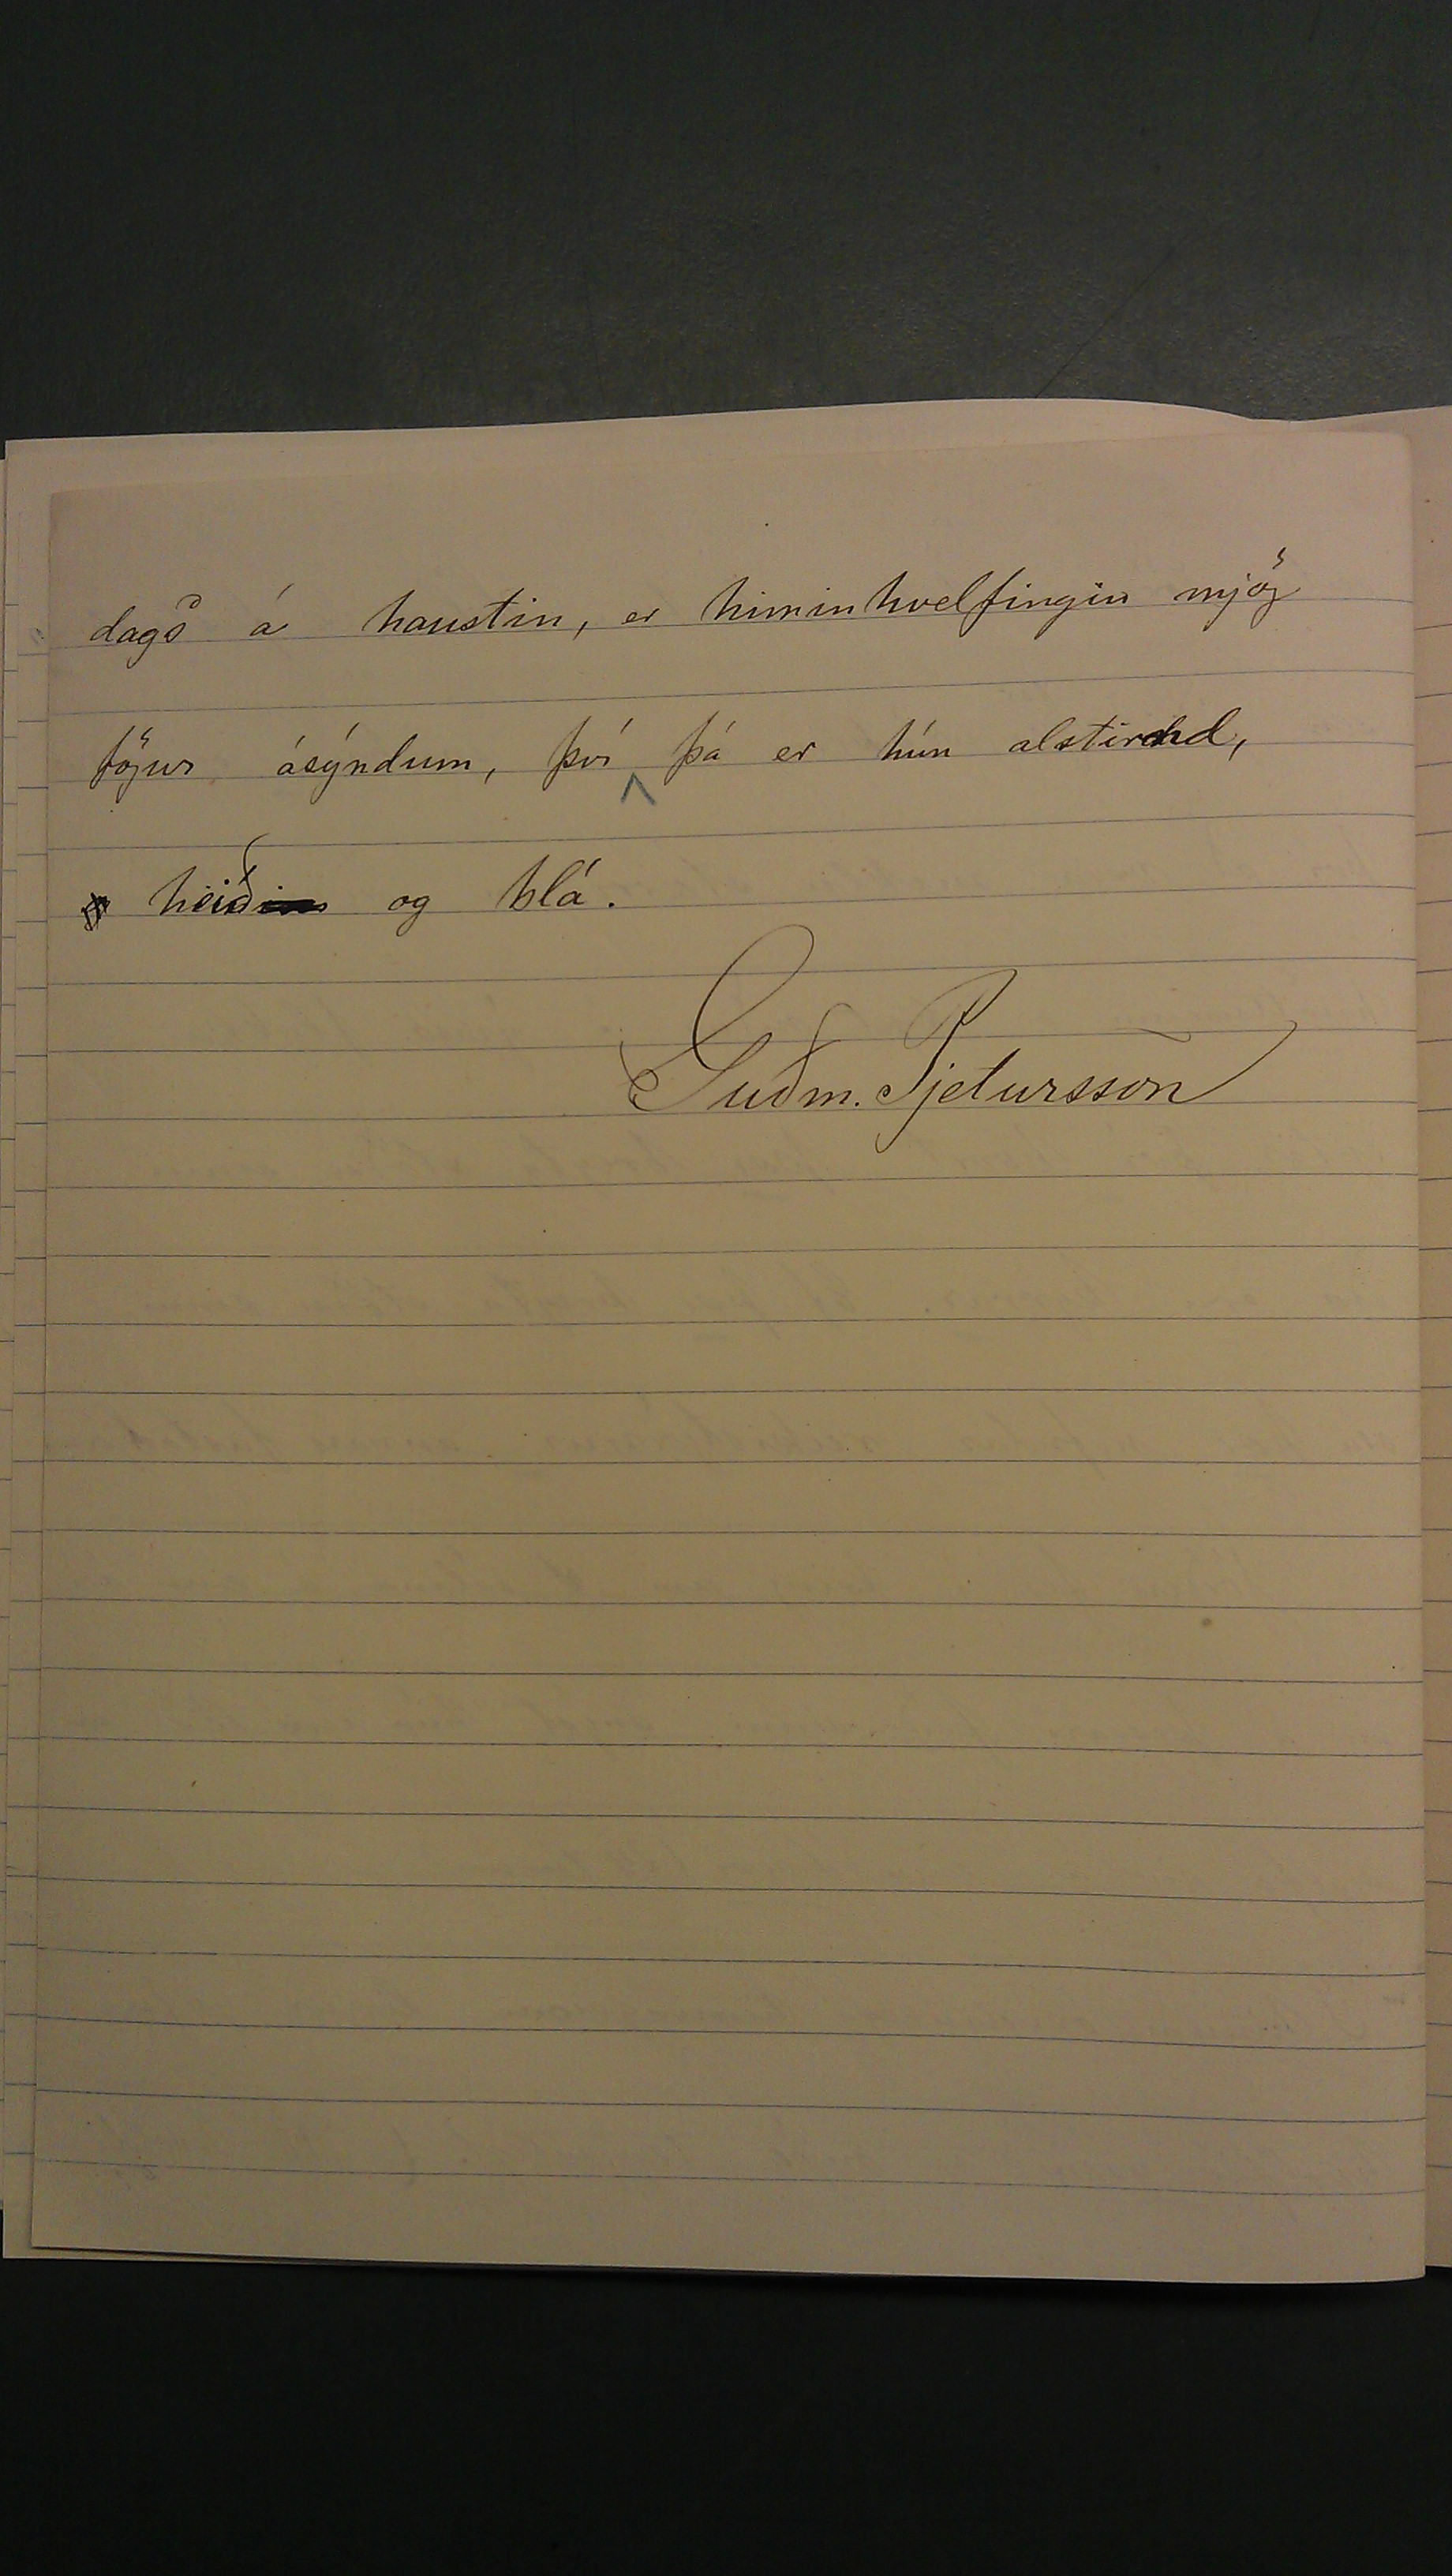 dags á haustin, er himinhvelfingin mjög
fögur ásýndum, því þá er hún alstirnd,
heið og blá.
Guðm. Pjetursson